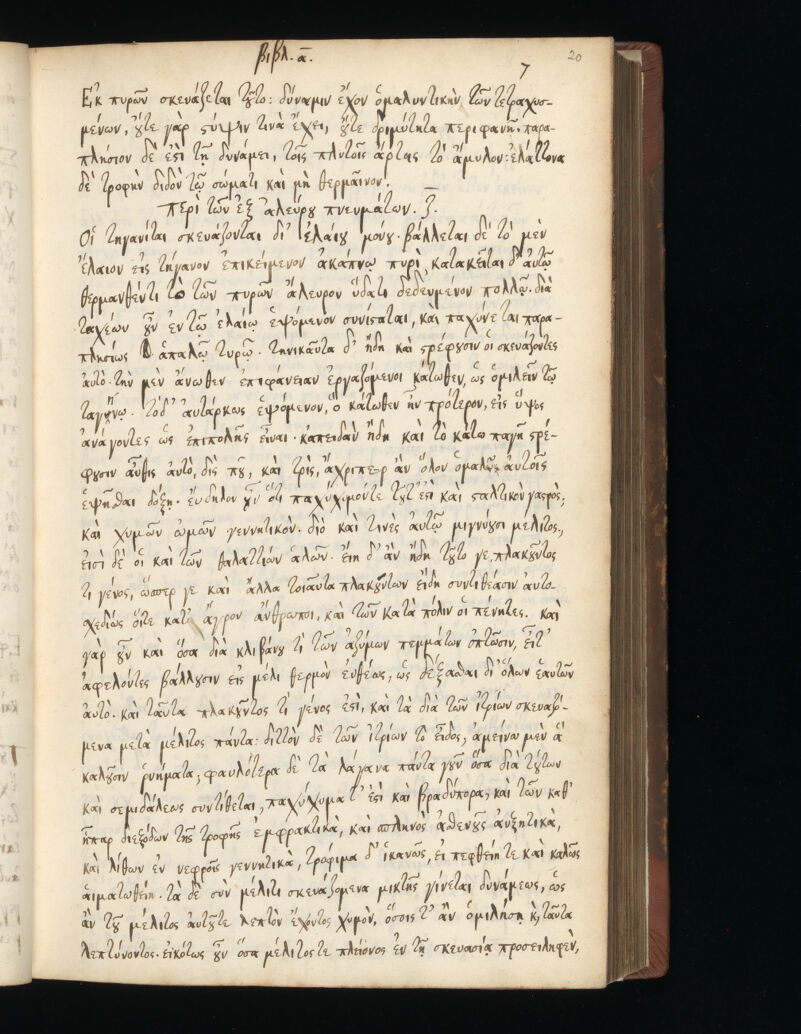 βιβλ. ᾱ.
7
20
Ἐκ πυρῶν σκευάζεται τοῦτο: δύναμιν ἔχον ὁμαλυντικὴν τῶν τετραχυσ-
μένων, οὔτε γὰρ στύψιν τινὰ ἔχει, οὔτε δριμύτητα περιφανῆ. παρα-
πλήσιον δὲ ἐστὶ τῇ δυνάμει, τοῖς πλυτοῖς ἄρτοις τὸ ἄμυλον: ἐλάττονα
δὲ τροφὴν διδὸν τῷ σώματι καὶ μὴ θερμαῖνον.
Περὶ τῶν ἐξ ἀλεύρου πνευμάτων. ζ̄.
Οἱ τηγανῖται σκευάζονται δι' ἐλαίου μόνου. βάλλεται δὲ τὸ μὲν
ἔλαιον εἰς τήγανον ἐπικείμενον ἀκάπνῳ πυρὶ, κατακεῖται δ' αὐτῷ
θερμανθέντι τὸ τῶν πυρῶν ἄλευρον ὕδατι δεδευμένον πολλῷ. διὰ
ταχέων οὖν ἐν τῷ ἐλαίῳ ἑψόμενον συνίσταται, καὶ παχύνεται παρα-
πλησίως ἁπαλῷ τυρῷ. τηνικαῦτα δ' ἤδη καὶ στρέφουσιν οἱ σκευάζοντες
αὐτὸ. τὴν μὲν ἄνωθεν ἐπιφάνειαν ἐργαζόμενοι κάτωθεν, ὡς ὁμιλεῖν τῷ
ταγήνῳ. τὸ δ' αὐτάρκως ἑψόμενον, ὃ κάτωθεν ἦν πρότερον, εἰς ὕψος
ἀνάγοντες ὡς ἐπιπολῆς εἶναι. κἀπειδὰν ἤδη καὶ τὸ κάτω παγῇ στρέ-
φουσιν αὖθις αὐτὸ, δίς που, καὶ τρὶς, ἄχριπερ ἂν ὅλον ὁμαλῶς αὐτοῖς
ἑψῆσθαι δόξῃ. εὔδηλον οὖν ὅτι παχύχυμόντε τοῦτ' ἐστὶ καὶ σταλτικὸν γαστρὸς,
καὶ χυμῶν ὠμῶν γεννητικὸν. διὸ καὶ τινὲς αὐτῷ μιγνύουσι μέλιτος,
εἰσὶ δὲ οἳ καὶ τῶν θαλαττίων ἁλῶν. εἴη δ' ἂν ἤδη τοῦτο γε, πλακοῦντος
τι γένος, ὥσπερ γε καὶ ἄλλα τοιαῦτα πλακούντων εἴδη συντιθέασιν αὐτο-
σχεδίως οἵτε κατ' ἄγρον ἄνθρωποι, καὶ τῶν κατὰ πόλιν οἱ πένητες. καὶ
γαρ οὖν καὶ ὅσα διὰ κλιβάνου τὶ τῶν ἀζύμων πεμμάτων ὀπτῶσιν, εἶτ'
ἀφελόντες βάλλουσιν εἰς μέλι θερμὸν εὐθέως, ὡς δέξασθαι δι' ὅλων ἑαυτῶν
αὐτό. καὶ ταῦτα πλακοῦντος τὶ γένος ἐστὶ, καὶ τὰ διὰ τῶν ἰτρίων σκευαζό-
μενα μετὰ μέλιτος πάντα: διττὸν δὲ τῶν ἰτρίων τὸ εἶδος, ἀμείνω μὲν ἃ
καλοῦσιν ῥυήματα, φαυλότερα δὲ τὰ λάγανα πάντα γοῦν ὅσα διὰ τούτων
καὶ σεμιδάλεως συντίθεται, παχύχυμα τ' ἐστὶ καὶ βραδύπορα, καὶ τῶν καθ'
ἧπαρ διεξόδων τῆς τροφῆς ἐμφρακτικὰ, καὶ σπληνὸς ἀσθενοῦς αὐξητικὰ,
καὶ λίθων ἐν νεφροῖς γεννητικὰ, τρόφιμα δ' ἱκανῶς, εἰ πεφθείη τε καὶ καλῶς
αἱματωθείη. τὰ δὲ σὺν μέλιτι σκευαζόμενα μικτῆς γίνεται δυνάμεως, ὡς
ἂν τοῦ μέλιτος αὐτοῦτε λεπτὸν ἔχοντος χυμὸν, ὅσοις τ' ἂν ὁμιλήσῃ κ, ταῦτα
λεπτύνοντος. εἰκότως οὖν ὅσα μέλιτοςτε πλείονος ἐν τῇ σκευασίᾳ προσείληφεν,